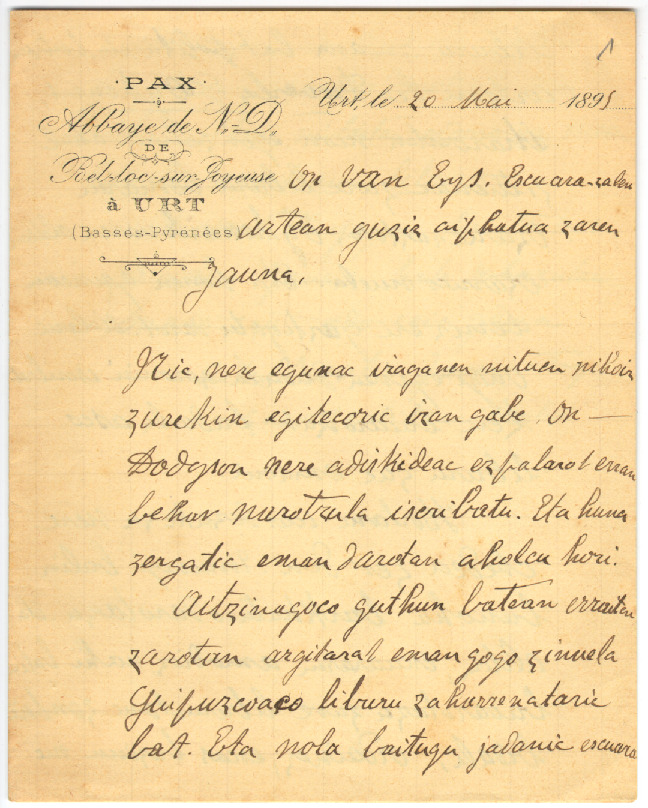 1
· PAX ·
Abbaye de N.-D.
DE
Bel-loc-sur-Joyeuse
à URT
(Basses-Pyrénées)
Urt, le 20 Mai 1895
on Van Eys. Escuara-zalen
artean guziz aiphatua zaren
Jauna,
Nic, nere egunac iraganen nituen nihoiz
zurekin egitecoric izan gabe, on —
Dodgson nere adiskideac ez palarot erran
behar narotzula iscribatu. Eta huna
zergatic eman darotan aholcu hori.
Aitzinagoco guthun batean erraiten
zarotan argitarat eman gogo zinuela
Guipuzcoaco liburu zaharrenataric
bat. Eta nola baitugu jadanic escuara